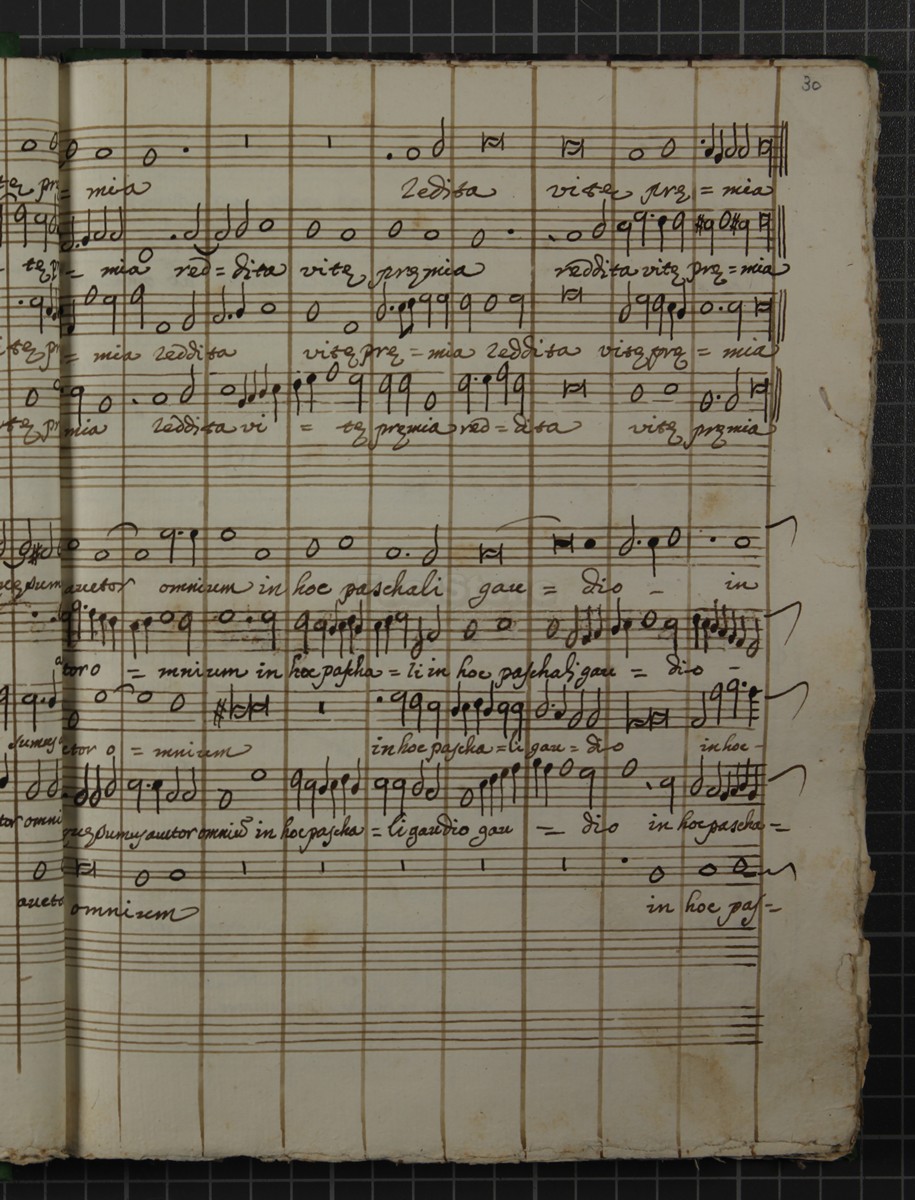 30
= mia redita vitę prę = mia
tę = mia red = dita vitę pręmia reddita vitę prę = mia
= mia reddita vitę prę = mia reddita vitę prę = mia
mia reddita vi = tę pręmia red = dita vitę pręmia
auctor omnium in hoc paschali gau = dio - in
tor o = mnium in hoc pascha = li in hoc paschali gau = dio -
ctor o = mnium in hoc pascha = li gau = dio in hoc -
quęsumus auctor omniū in hoc pascha = li gaudio gau = dio in hoc pascha =
aucto omnium in hoc pas=